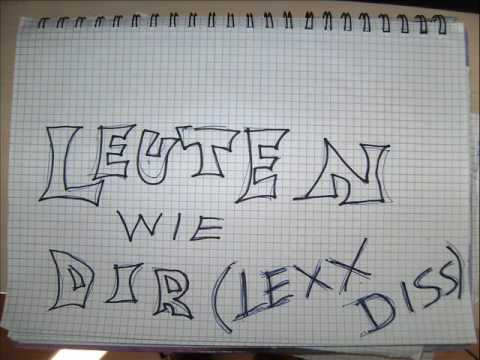 LEUTEN
WIE
DIR (LEXX DISS)